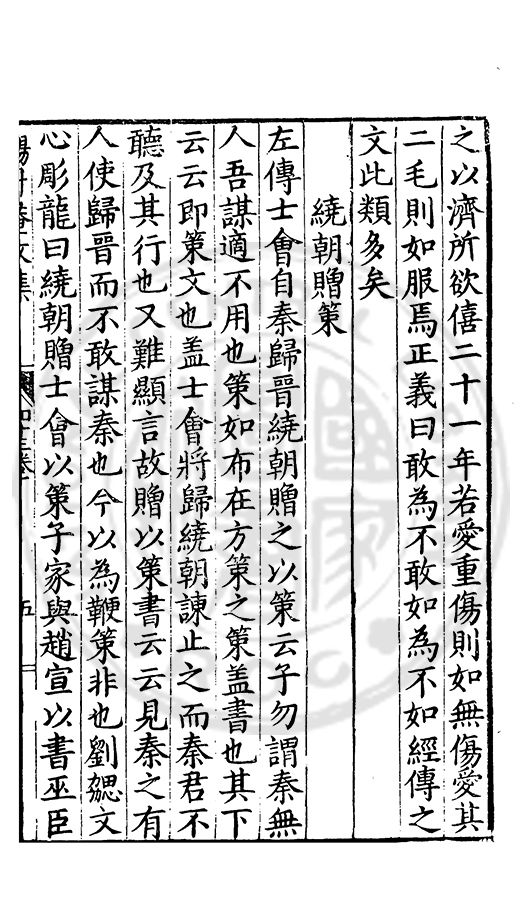 之以濟所欲僖二十一年若愛重傷則如無傷愛其
二毛則如服焉正義曰敢為不敢如為不如經傳之
文此類多矣
繞朝贈策
左傳士會自秦歸晉繞朝贈之以策云子勿謂秦無
人吾謀適不用也策如布在方策之策盖書也其下
云云即策文也盖士會將歸繞朝諫止之而秦君不
聽及其行也又難顯言故贈以策書云云見秦之有
人使歸晉而不敢謀秦也今以為鞭策非也劉勰文
心彫龍曰繞朝贈士會以策子家與趙宣以書巫臣
五